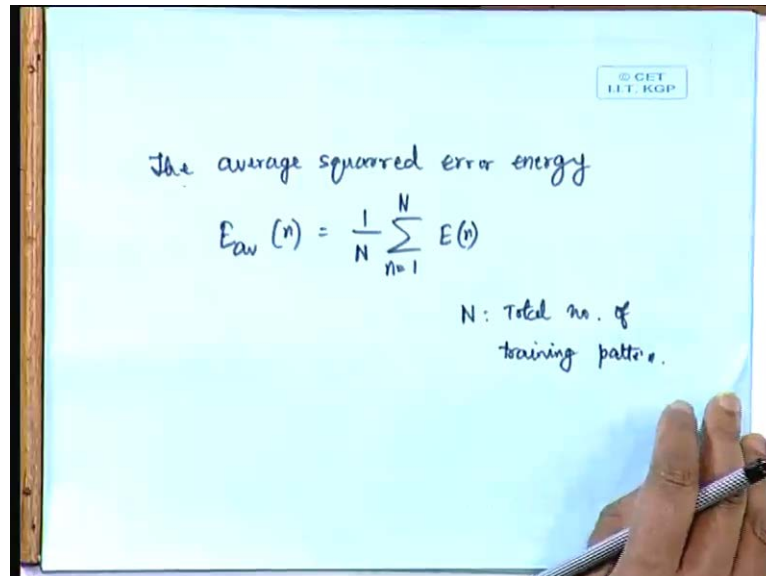 © CET
I.I.T. KGP
The average squarred error energy
E_av (n) = 1/N ∑_{n=1}^{N} E(n)
N: Total no. of
training